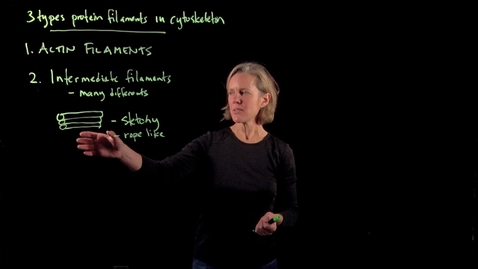 3 types protein filaments in cytoskeleton
1. ACTIN FILAMENTS
2. Intermediate filaments
- many differents
- stretchy
- rope like